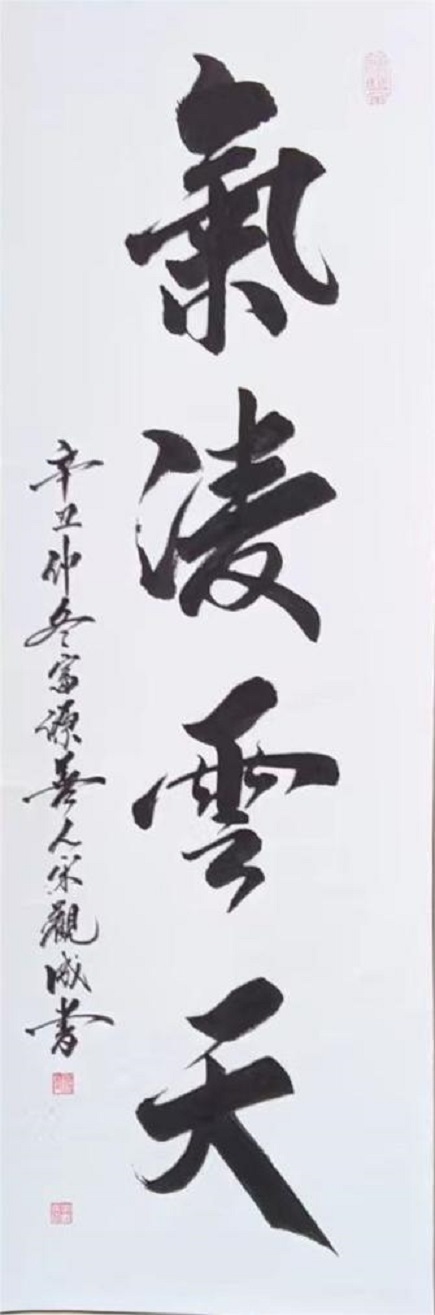 氣凌雲天
辛丑仲冬富源善人宋觀成書